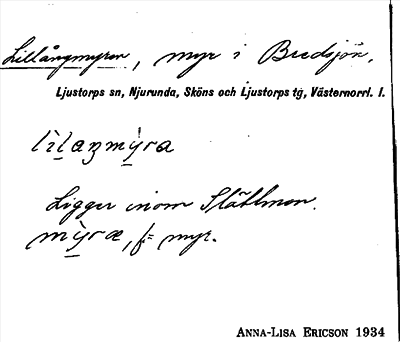 Lillångmyren, myr i Bredsjön,
Ljustorps sn, Njurunda, Sköns och Ljustorps tg, Västernorrl. l.
lìlaŋmỳra
Ligger inom Slåttmon.
mỳræ, f= myr.
ANNA-LISA ERICSON 1934